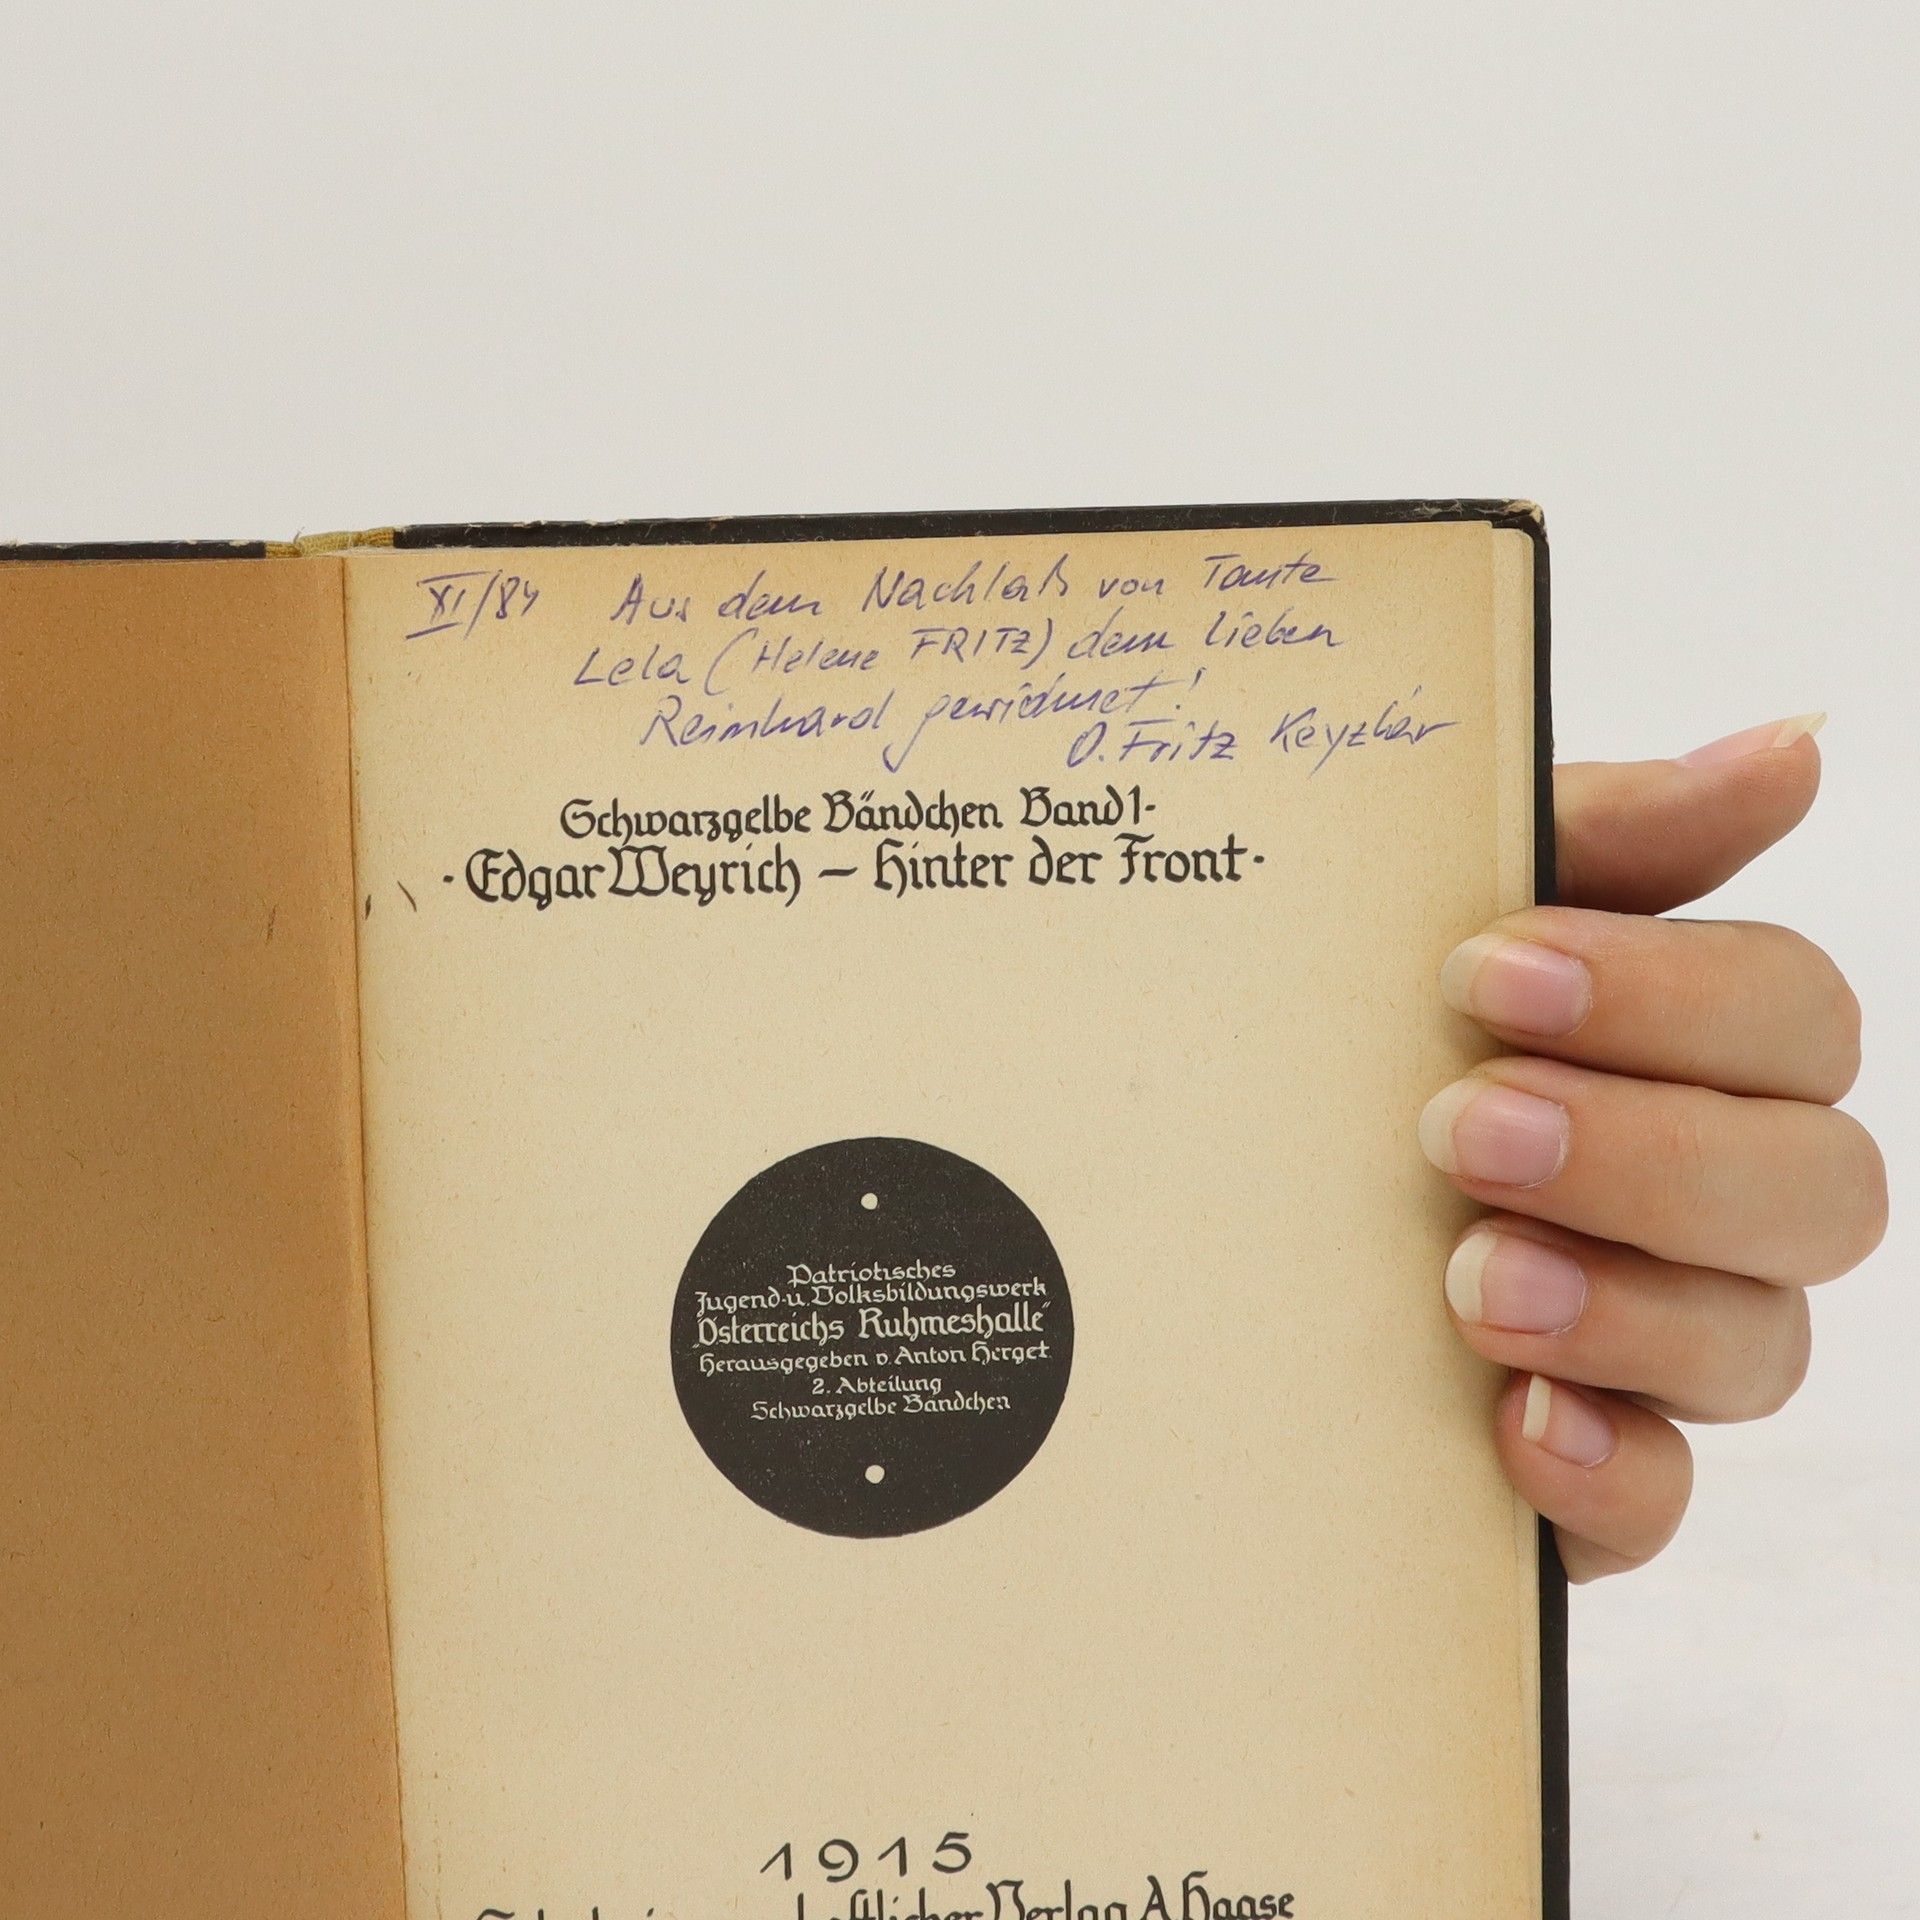 XI/84 Aus dem Nachlaß von Tante
Lela (Helene FRITZ) dem lieben
Reinhard gewidmet!
O. Fritz Keyzlár
Schwarzgelbe Bändchen Band 1-
·Edgar Weyrich – Hinter der Front·
Patriotisches
Jugend-u. Volksbildungswerk
„Österreichs Ruhmeshalle“
Herausgegeben v. Anton Herget
2. Abteilung
Schwarzgelbe Bändchen
1915
Verlag A Haase